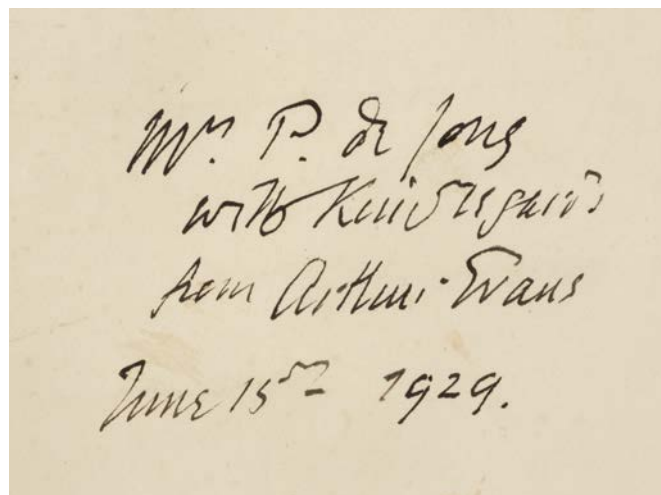 Mr. P. de Jong
with Kind regards
from Arthur Evans
June 15th 1929.